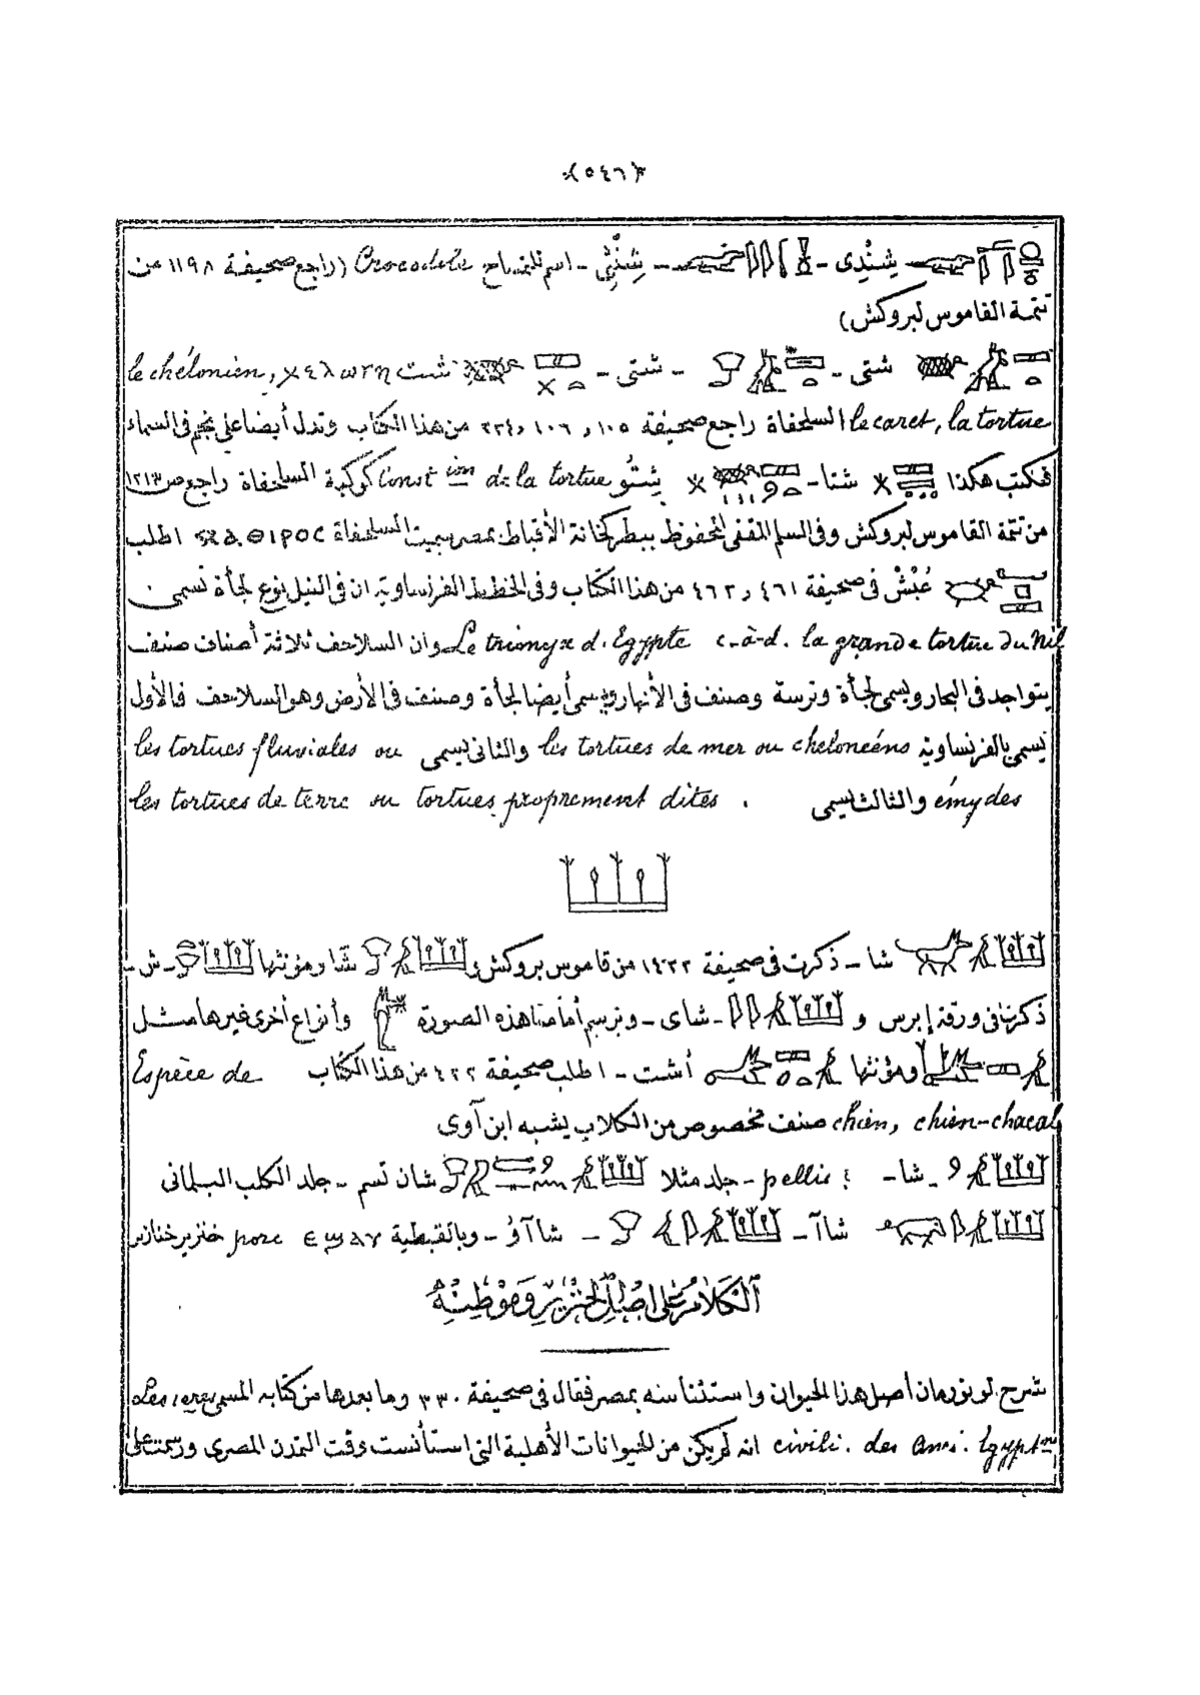 (٥٤٦)
شِنْدِى - شِنْتِى - اسم للتمساح Crocodile (راجع صحيفة ١١٩٨ من
تتمة القاموس لبروكش)
شتى - شتى - شت le chélonien, χελωνη
le caret, la tortue السلحفاة راجع صحيفة ١٠٥, ١٠٦, ٢٢٤ من هذا الكتاب وتدل أيضا على نجم فى السماء
فتكتب هكذا شتا - شِتُو Const ion de la tortue كوكبة السلحفاة راجع ص ١٢١٣
من تتمة القاموس لبروكش وفى السلم المقفى المحفوظ ببطركخانة الأقباط بمصر سميت السلحفاة اطلب
عُبْشْ فى صحيفة ٤٦١, ٤٦٢ من هذا الكتاب وفى الخطط الفرنساوية ان فى النيل نوع لجأة تسمى
Le trionyx d'Egypte c.-à-d. la grande tortue du Nil وان السلاحف ثلاثة أصناف صنف
يتواجد فى البحار ويسمى لجأة وترسة وصنف فى الأنهار ويسمى أيضا لجأة وصنف فى الأرض وهو السلاحف فالأول
يسمى بالفرنساوية les tortues de mer ou chelonéens والثانى يسمى les tortues fluviales ou
émydes والثالث يسمى les tortues de terre ou tortues proprement dites .
شا - ذكرت فى صحيفة ١٤٢٢ من قاموس بروكش, شا ومؤنثها - ش -
ذكرتا فى ورقة إبرس و - شاى - وترسم أمامنا هذه الصورة وأنواع أخرى غيرها مثل
ومؤنثها أشت - اطلب صحيفة ٤٢٢ من هذا الكتاب Espèce de
chien, chien-chacal صنف مخصوص من الكلاب يشبه ابن آوى
شا - ; pellis - جلد مثلا شان تسم - جلد الكلب السلمانى
شاآ - - شاآؤ - وبالقبطية ⲉϣⲁⲩ porc خنزير خنازير
الكلام على اصل الخنزير وموطنه
شرح لونورمان أصل هذا الحيوان واستئناسه بمصر فقال فى صحيفة ٣٣٠ وما بعدها من كتابه المسمى Les 1eres
civili. des Anci. Egyptns انه لم يكن من الحيوانات الأهلية التى استأنست وقت التمدن المصرى ورسمت على